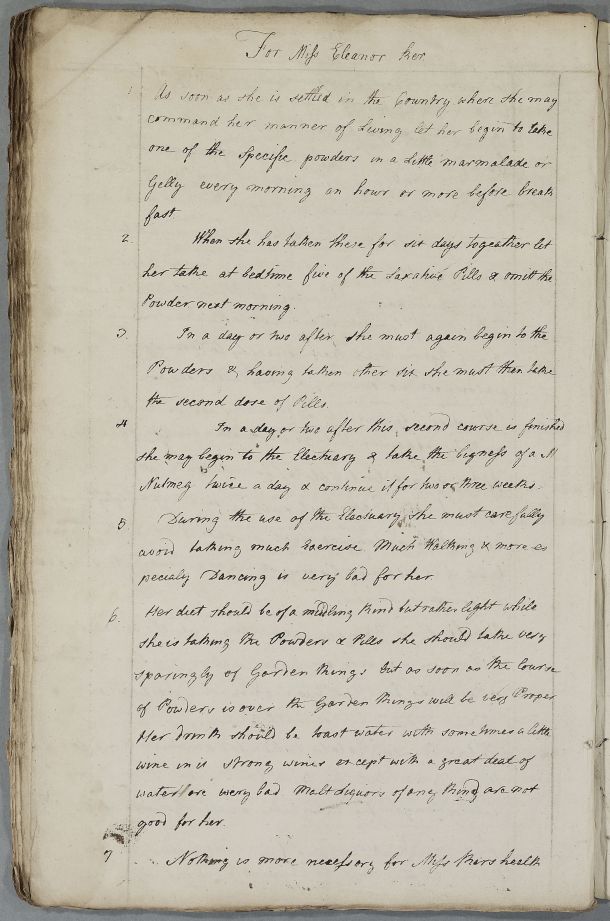 For Miss Eleanor Ker
1 As soon as she is settled in the Country where she may
command her manner of Living let her begin to take
one of the Specific powders in a Little marmalade or
Gelly every morning an hour or more before break
fast
2. When she has taken these for six days togeather let
her take at bedtime five of the Laxative Pills & omitt the
Powder next morning.
3. In a day or two after she must again begin to the
Powders & having taken other six she must then take
the second dose of Pills.
4 In a day or two after this second course is finished
she may begin to the Electuary & take the bigness of a N
Nutmeg twice a day & continue it for two or three weeks.
5 During the use of the Electuary she must carefully
avoid taking much Exercise Much Walking & more es
pecialy Dancing is very bad for her
6. Her diet should be of a midling kind but rather light while
she is taking the Powders & Pills she should take very
sparingly of Garden things but as soon as the Course
of Powders is over the Garden things will be very Proper
Her drink should be toast water with sometimes a little
wine in is strong wines except with a great deal of
water are very bad Malt Liquors of any kind are not
good for her.
7 Nothing is more necessary for Miss Kers health